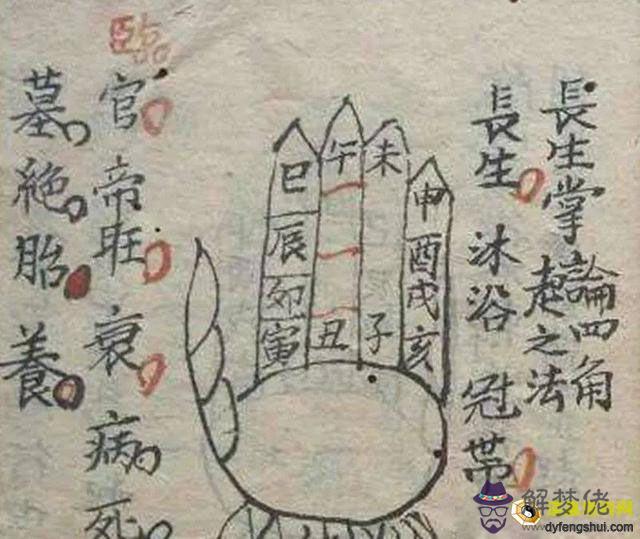 長生掌論四角
起之法
長生 沐浴 冠帶
臨
官 帝旺 衰 病 死
墓 絕 胎 養
巳 午 未 申
辰 酉
卯 戌
寅 丑 子 亥
解梦佬
www.dyfengshui.com